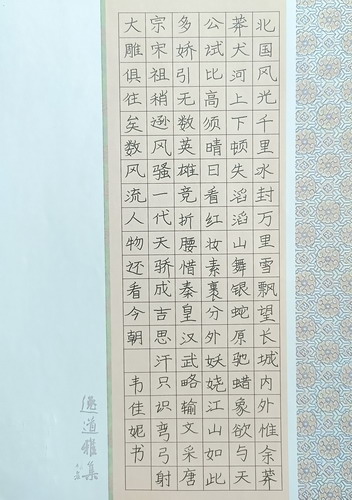 北国风光千里水封万里雪飘望长城内外惟余莽
莽犬河上下顿失滔滔山舞银蛇原驰蜡象欲与天
公试比高须晴日看红妆素裹分外妖娆江山如此
多娇引无数英雄竞折腰惜秦皇汉武略输文采唐
宗宋祖稍逊风骚一代天骄成吉思汗只识弯弓射
大雕俱住矣数风流人物还看今朝
韦佳妮书
道雅集